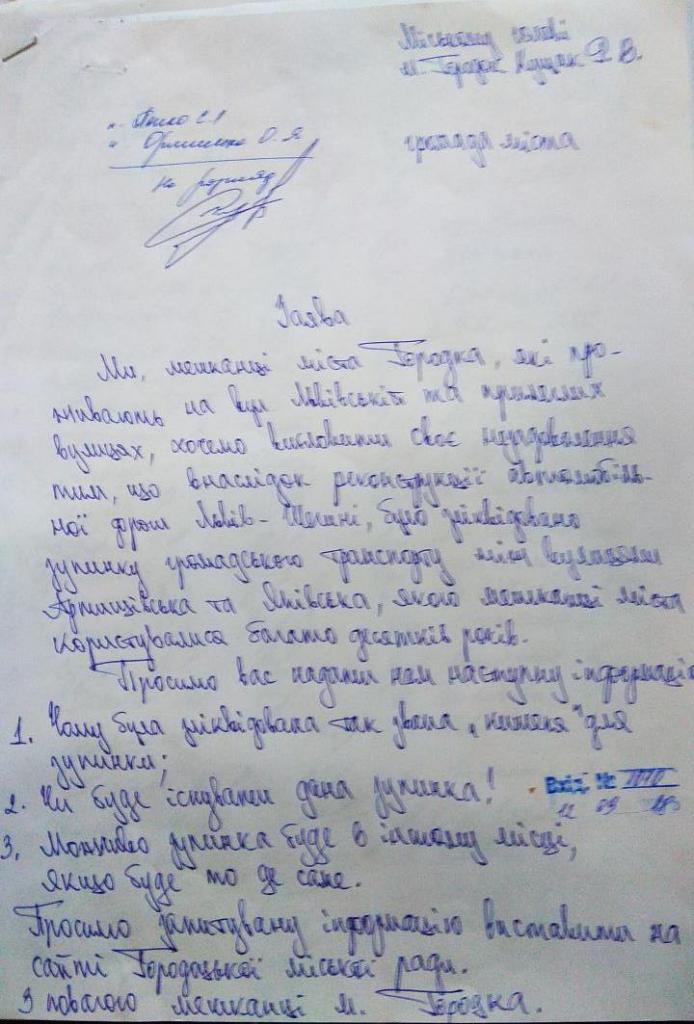 Міському голові
м. Городок Кущак Р. В.
громада міста
О. Я
на розгляд
Заява
Ми, мешканці міста Городка, які про-
живають на вул Львівській та прилеглих
вулицях, хочемо висловити своє незадоволення
тим, що внаслідок реконструкції автомобіль-
ної дороги Львів-Шегині, було ліквідовано
зупинку громадського транспорту між вулицями
Артищівська та Янівська, якою мешканці міста
користувалися багато десятків років.
Просимо вас надати нам наступну інформацію
1. Чому була ліквідована так звана „кишеня" для
зупинки;
2. Чи буде існувати дана зупинка!
Вхід. №
3. Можливо зупинка буде в іншому місці,
якщо буде то де саме.
Просимо запитувану інформацію виставити на
сайті Городоцької міської ради.
З повагою мешканці м. Городка.